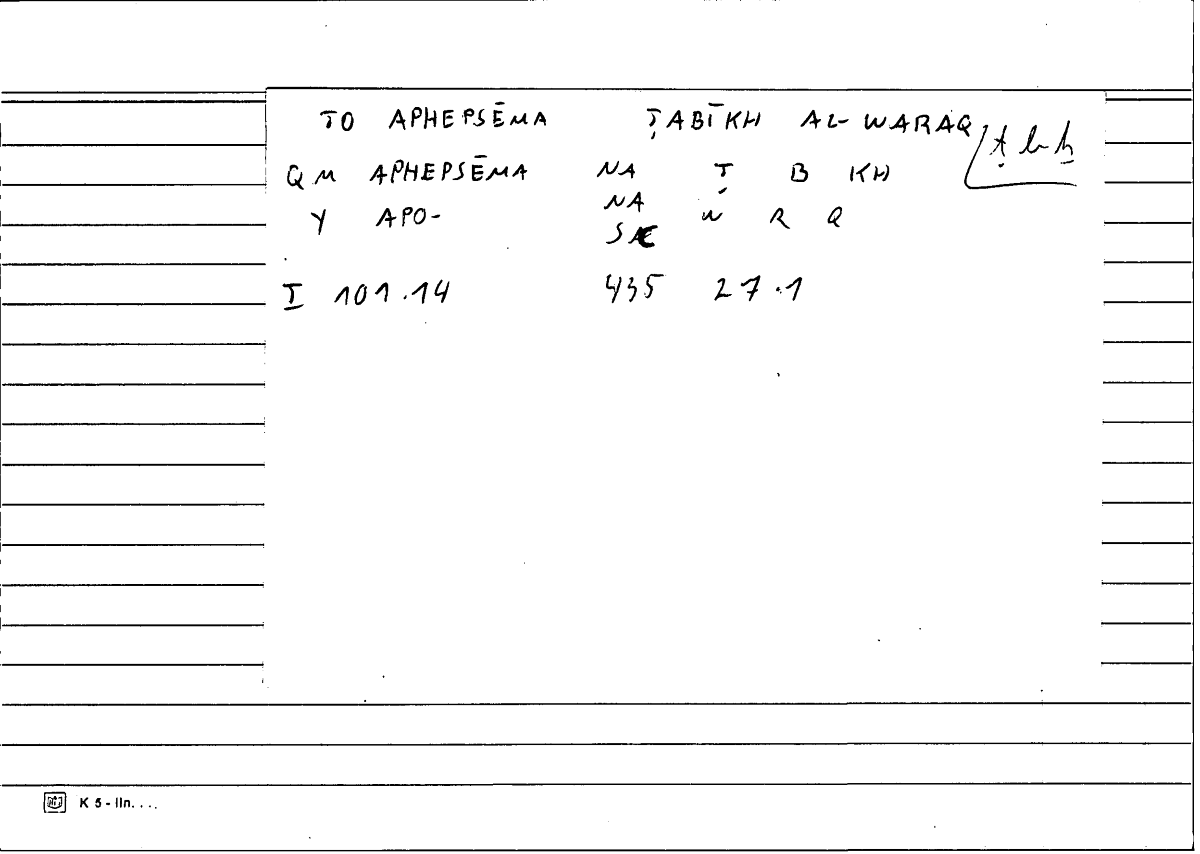 TO APHEPSĒMA ṬABĪKH AL-WARAQ ṭ b ḫ
QM APHEPSĒMA NA Ṭ B KH
Y APO- NA W R Q
I 101.14 435 27.1
K 5 - lln. . . .